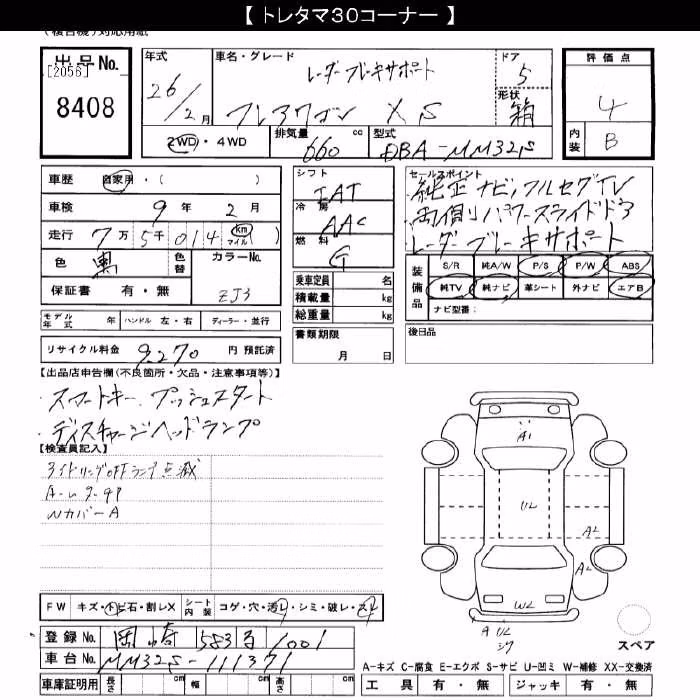 【 トレタマ30コーナー 】
出品No.
[2056]
8408
年式 車名・グレード ドア 評価点
レーダーブレーキサポート 5
26/2月 フレアワゴン XS 形状 箱 4
2WD・4WD 排気量 660 cc 型式 DBA-MM32S 内装 B
車歴 自家用・( )
車検 9年 2月
走行 7万 5千 014 km マイル( )
色 黒 色替 カラーNo. ZJ3
保証書 有・無
シフト IAT
冷房 AAC
燃料 G
乗車定員 名
積載量 kg
総重量 kg
書類期限 月 日
セールスポイント
純正ナビ、フルセグTV
両側パワースライドドア
レーダーブレーキサポート
装備品 S/R 純A/W P/S P/W ABS
純TV 純ナビ 革シート 外ナビ エアB
ナビ型番:
モデル年式 年 ハンドル 左・右 ディーラー・並行
後日品
リサイクル料金 9,270 円 預託済
【出品店申告欄(不良箇所・欠品・注意事項等)】
・スマートキー、プッシュスタート
・ディスチャージヘッドランプ
【検査員記入】
アイドリングOFFランプ点滅
NカバーA
A1
UL
AL
AL
WL
A UL
FW キズ・トビ石・割レX シート内装 コゲ・穴・汚レ・シミ・破レ・スレ
登録No. 岡崎 583 る 1001
車台No. MM32S-111371
車庫証明用 長さ cm 幅 cm 高さ cm
スペア
A-キズ C-腐食 E-エクボ S-サビ U-凹ミ W-補修 XX-交換済
工具 有・無 ジャッキ 有・無